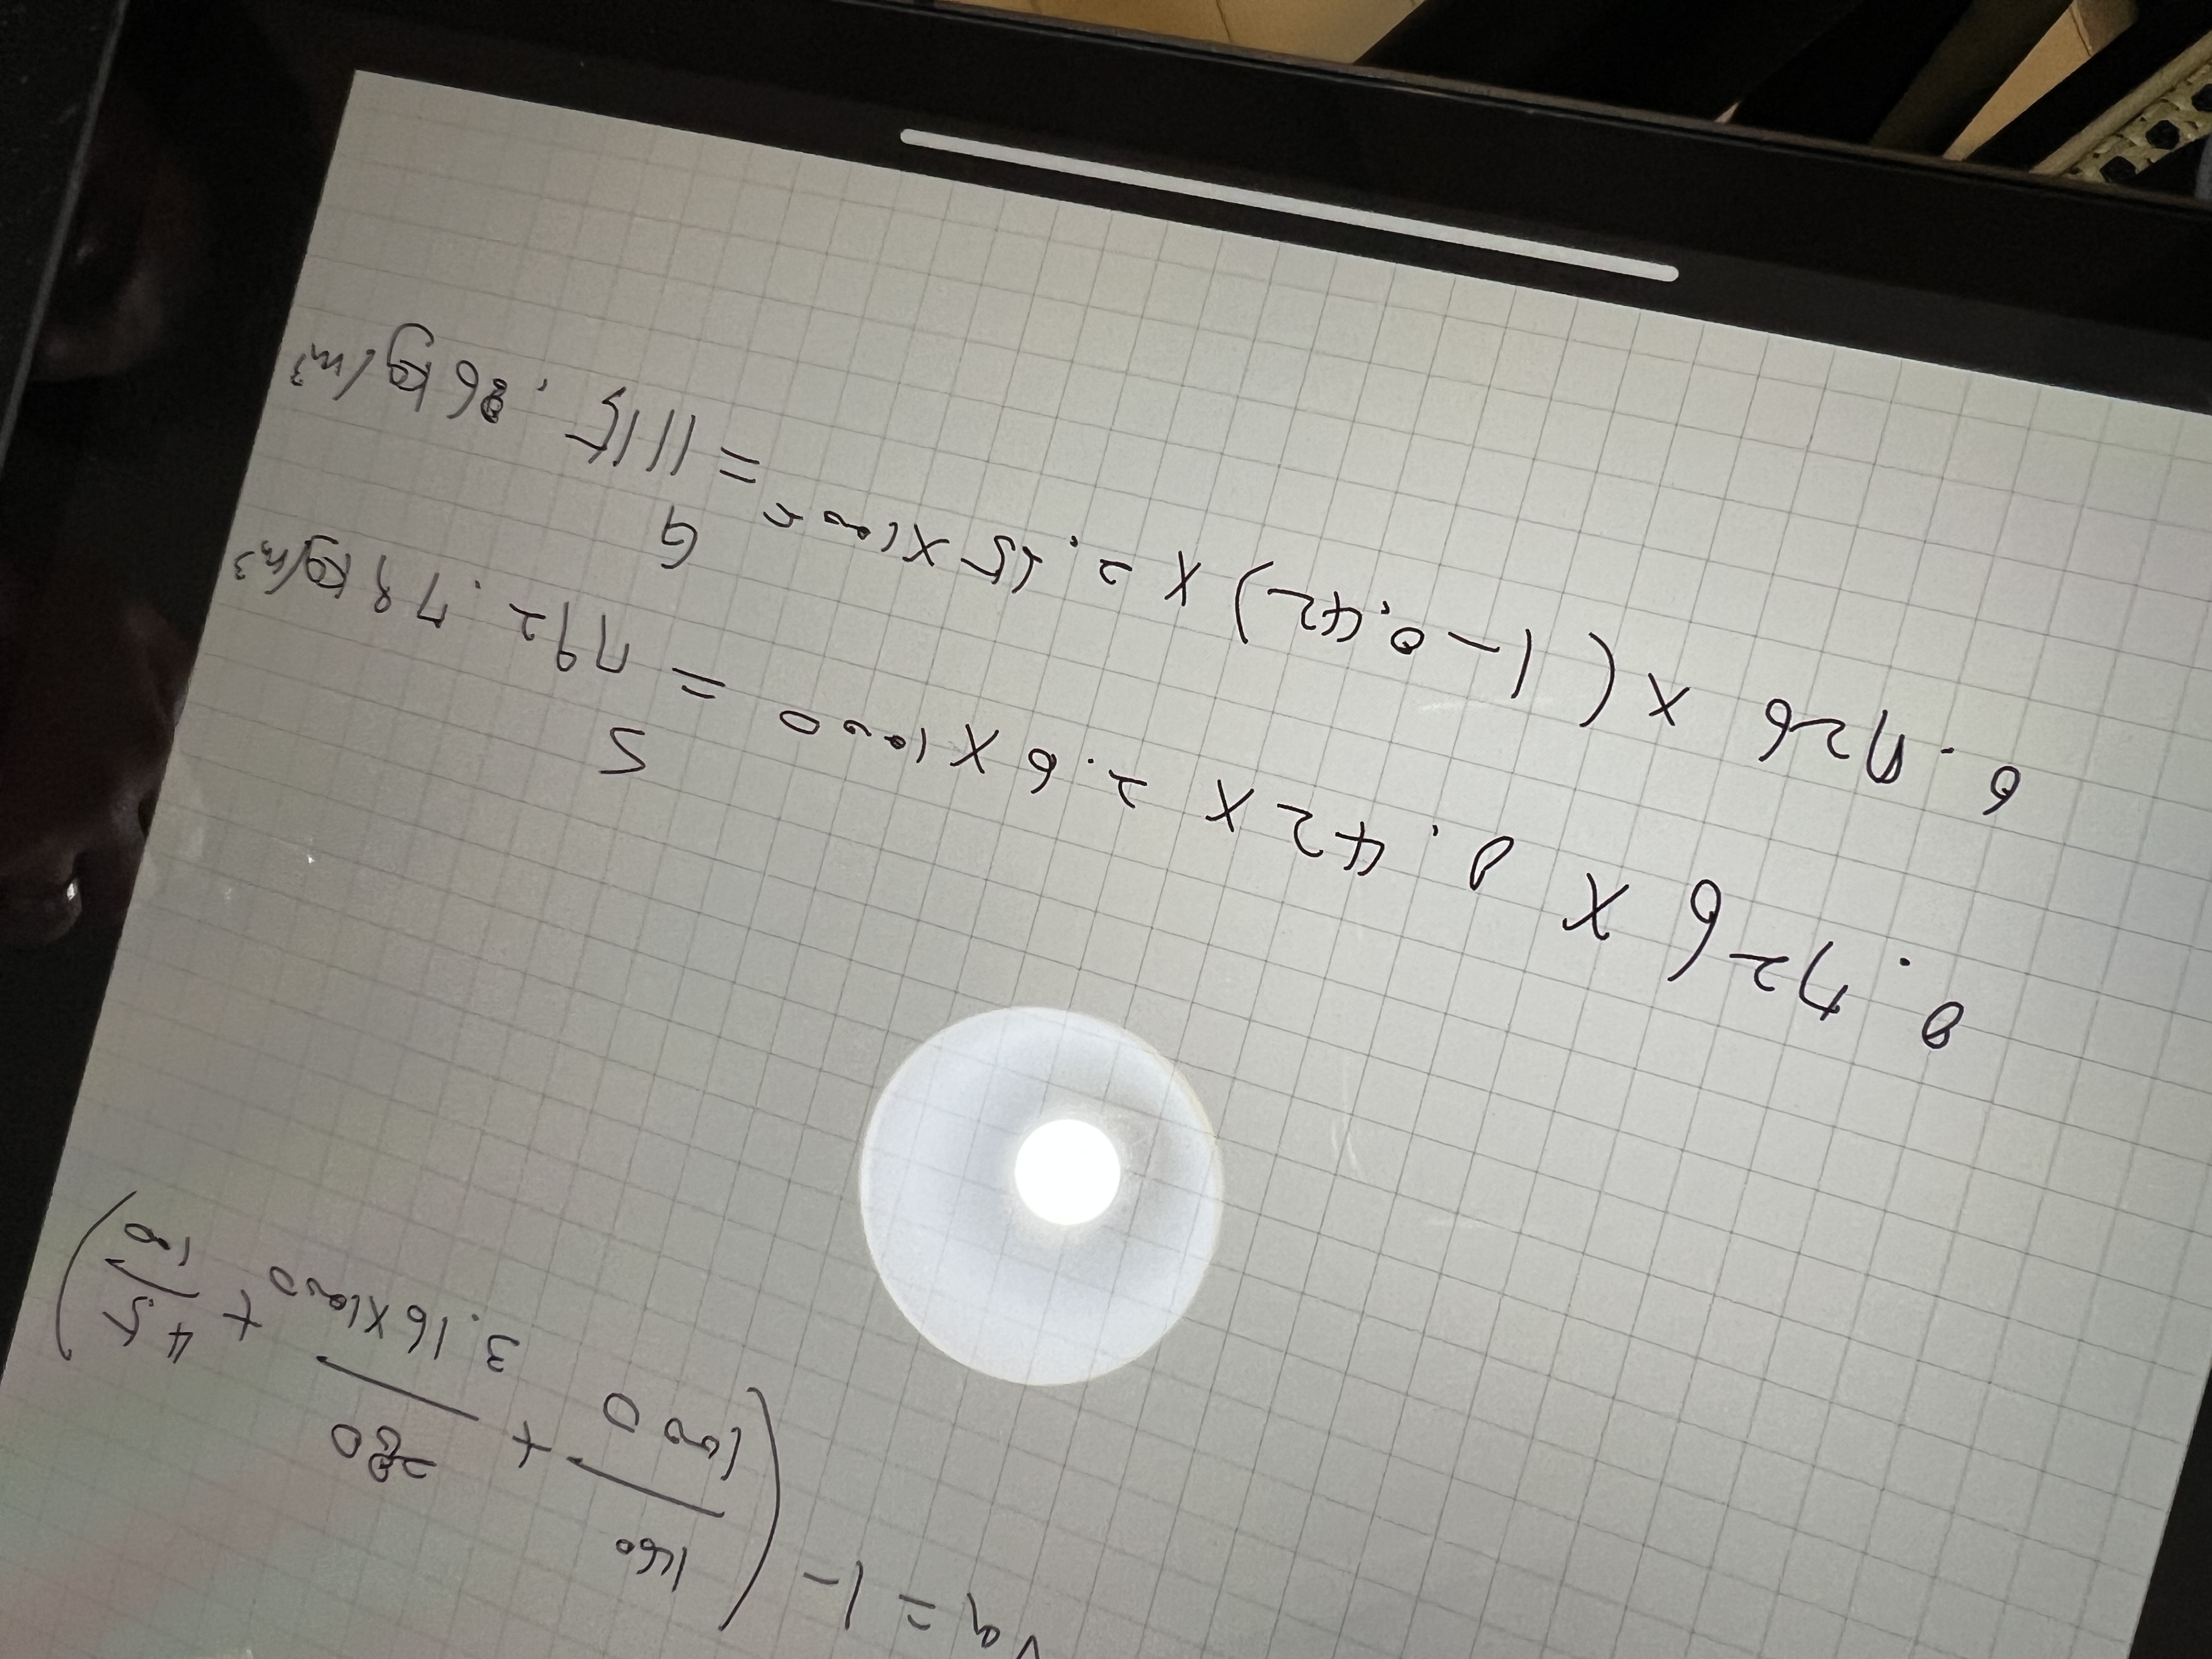 Va = 1 - ( 160/1000 + 280/3.16×1000 + 4.5/100 )
0.726 × 0.42 × 2.6 × 1000 = 792.78 kg/m³
S
0.726 × (1 - 0.42) × 2.65 × 1000 = 1115.86 kg/m³
G